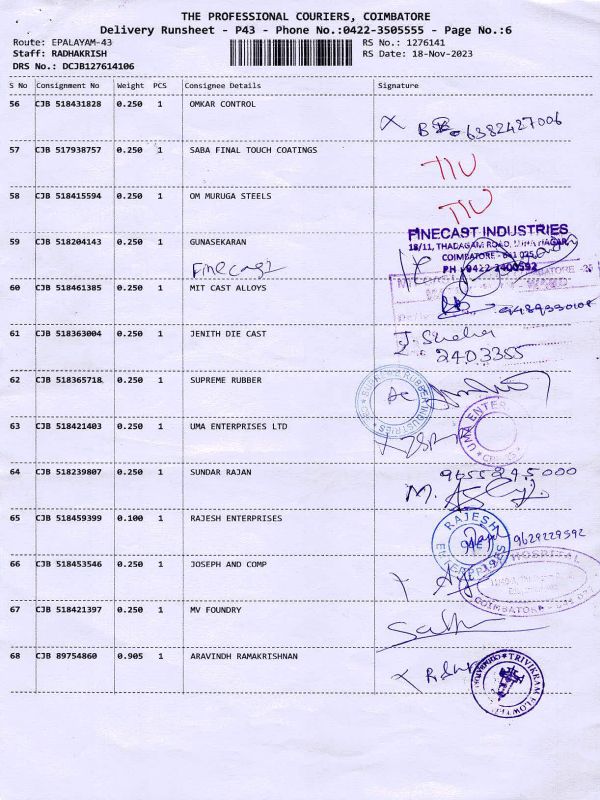 THE PROFESSIONAL COURIERS, COIMBATORE
Delivery Runsheet - P43 - Phone No.:0422-3505555 - Page No.:6
Route: EPALAYAM-43 RS No.: 1276141
Staff: RADHAKRISH RS Date: 18-Nov-2023
DRS No.: DCJB127614106
S No Consignment No Weight PCS Consignee Details Signature
56 CJB 518431828 0.250 1 OMKAR CONTROL
6382427006
57 CJB 517938757 0.250 1 SABA FINAL TOUCH COATINGS
58 CJB 518415594 0.250 1 OM MURUGA STEELS
FINECAST INDUSTRIES
18/11, THADAGAM ROAD,
59 CJB 518204143 0.250 1 GUNASEKARAN
COIMBATORE - 641 025
Finecast PH : 0422-2400592
60 CJB 518461385 0.250 1 MIT CAST ALLOYS
61 CJB 518363004 0.250 1 JENITH DIE CAST
2403355
62 CJB 518365718 0.250 1 SUPREME RUBBER
SUPREME RUBBER INDUSTRIES
63 CJB 518421403 0.250 1 UMA ENTERPRISES LTD
UMA ENTE
64 CJB 518239807 0.250 1 SUNDAR RAJAN
9655245000
65 CJB 518459399 0.100 1 RAJESH ENTERPRISES
RAJESH ENTERPRISES
9629229592
66 CJB 518453546 0.250 1 JOSEPH AND COMP
HOSPITAL
COIMBATORE
67 CJB 518421397 0.250 1 MV FOUNDRY
68 CJB 89754860 0.905 1 ARAVINDH RAMAKRISHNAN
TRIVIKRAM